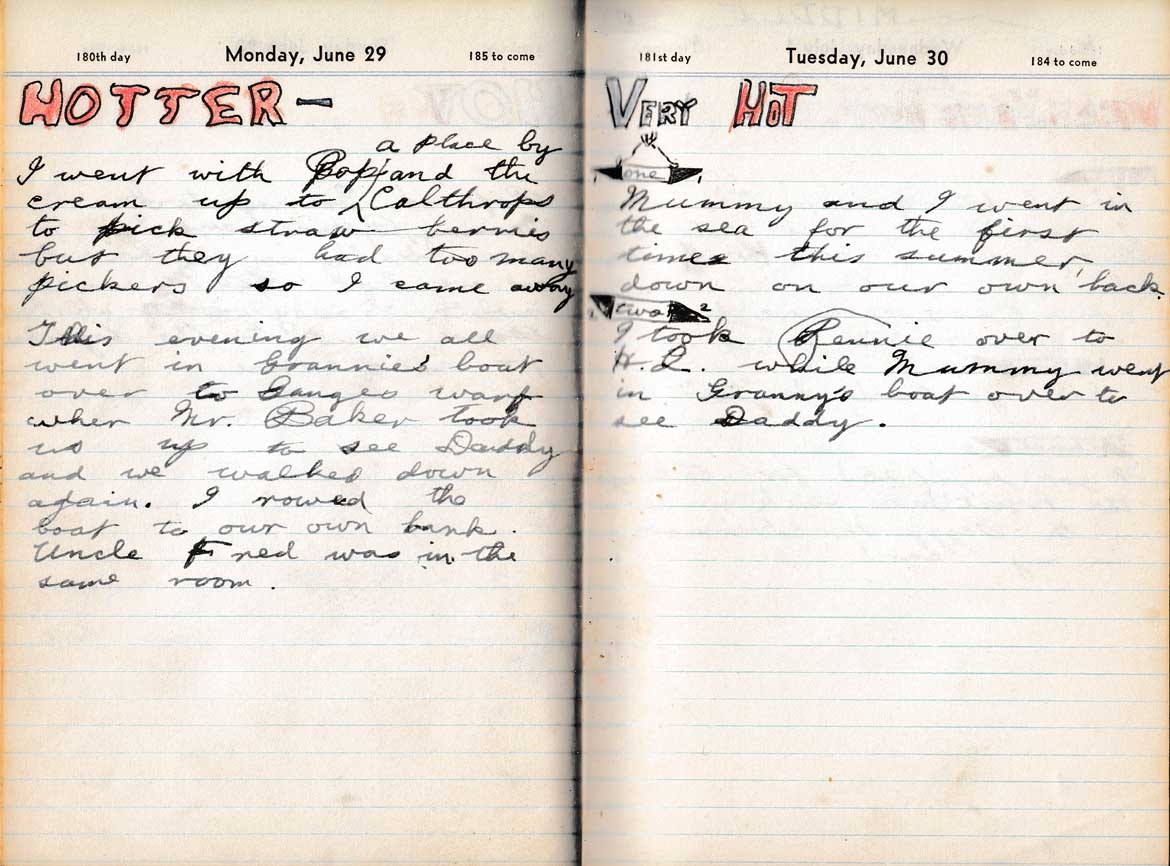 180th day Monday, June 29 185 to come
HOTTER —
a place by
I went with Pop and the
cream up to Calthrops
to pick straw berries
but they had too many
pickers so I came away
This evening we all
went in Grannies' boat
over to Ganges warf
wher Mr. Baker took
us up to see Daddy
and we walked down
again. I rowed the
boat to our own bank.
Uncle Fred was in the
same room.
181st day Tuesday, June 30 184 to come
VERY HOT
1 one 1
Mummy and I went in
the sea for the first
time this summer,
down on our own back.
two 2
I took Rennie over to
H.Q. while Mummy went
in Granny's boat over to
see Daddy.